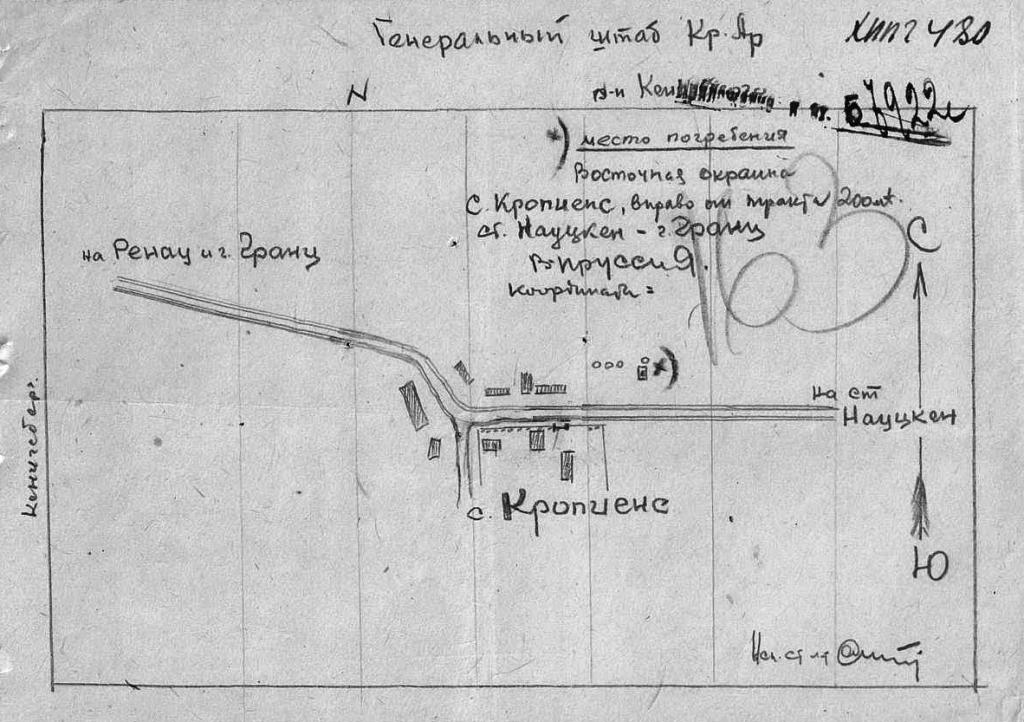 Генеральный штаб Кр. Яр
ХППГ 430
N
р-н Кен
57922м
*) место погребения
Восточная окраина
с. Кропиенс, вправо от тракта 200 мт.
ст. Науцкен - г. Гранц
В Пруссия.
координата =
163
С
на Ренау и г. Гранц
*)
на ст
Науцкен
Кенигсберг.
с. Кропиенс
Ю